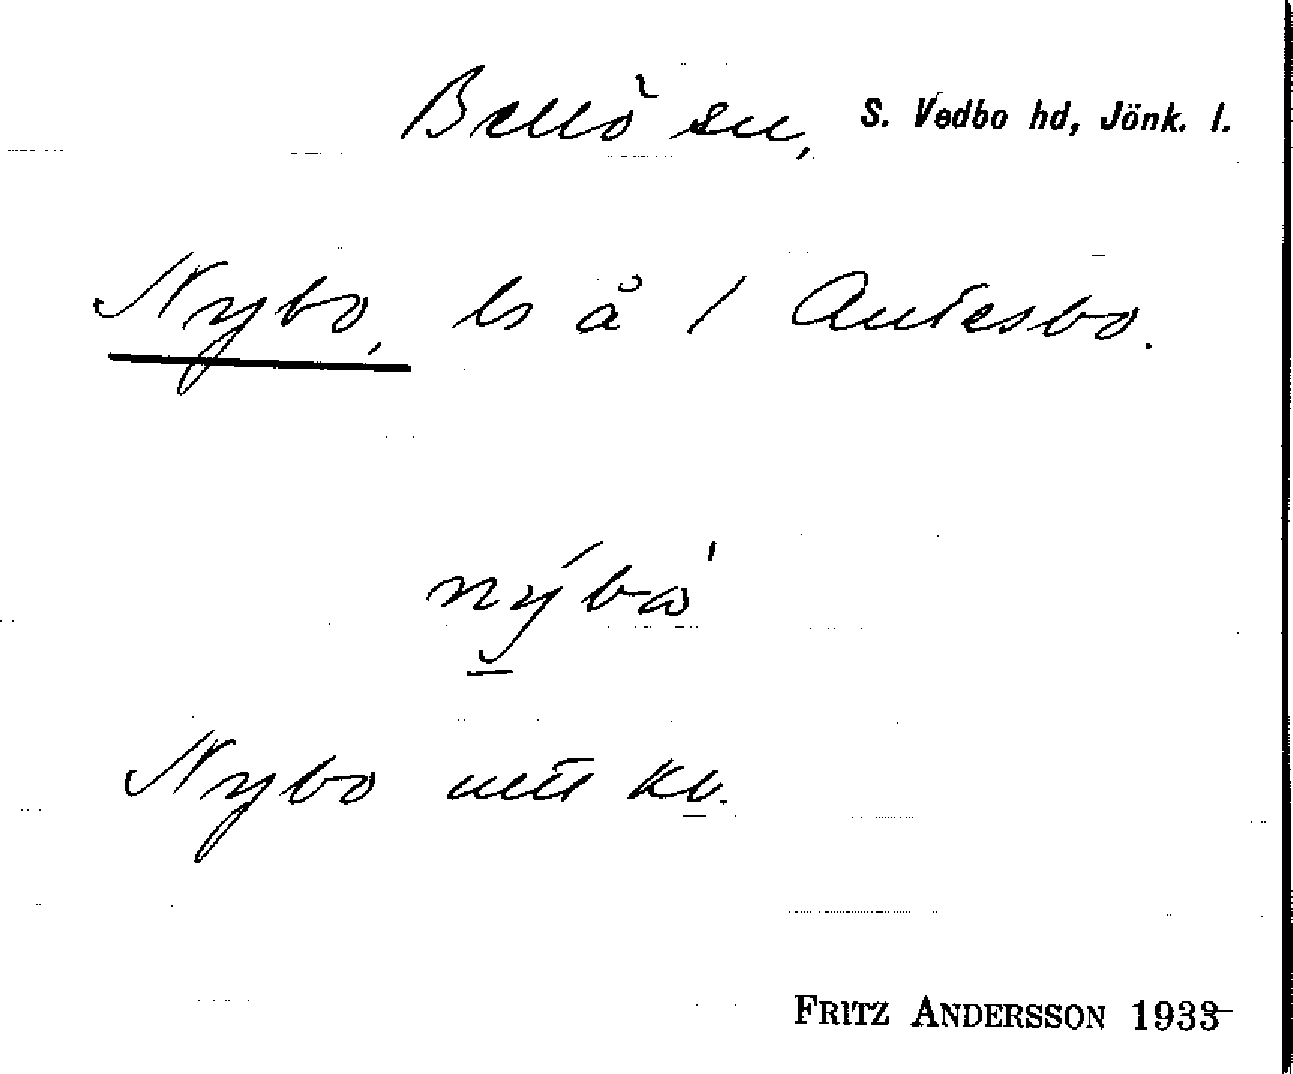 Bellö sn, S. Vedbo hd, Jönk. l.
Nybo, ls å 1 Antesbo.
nýbὼ
Nybo utt kv.
FRITZ ANDERSSON 1933